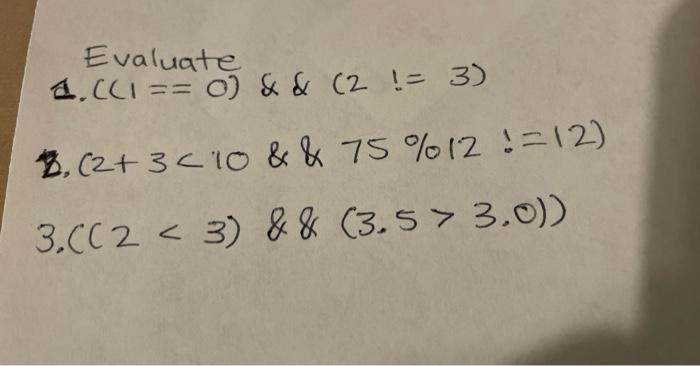 Evaluate
1.((1 == 0) && (2 != 3)
2.(2+3<10 && 75 %12 !=12)
3.((2 < 3) && (3.5 > 3.0))